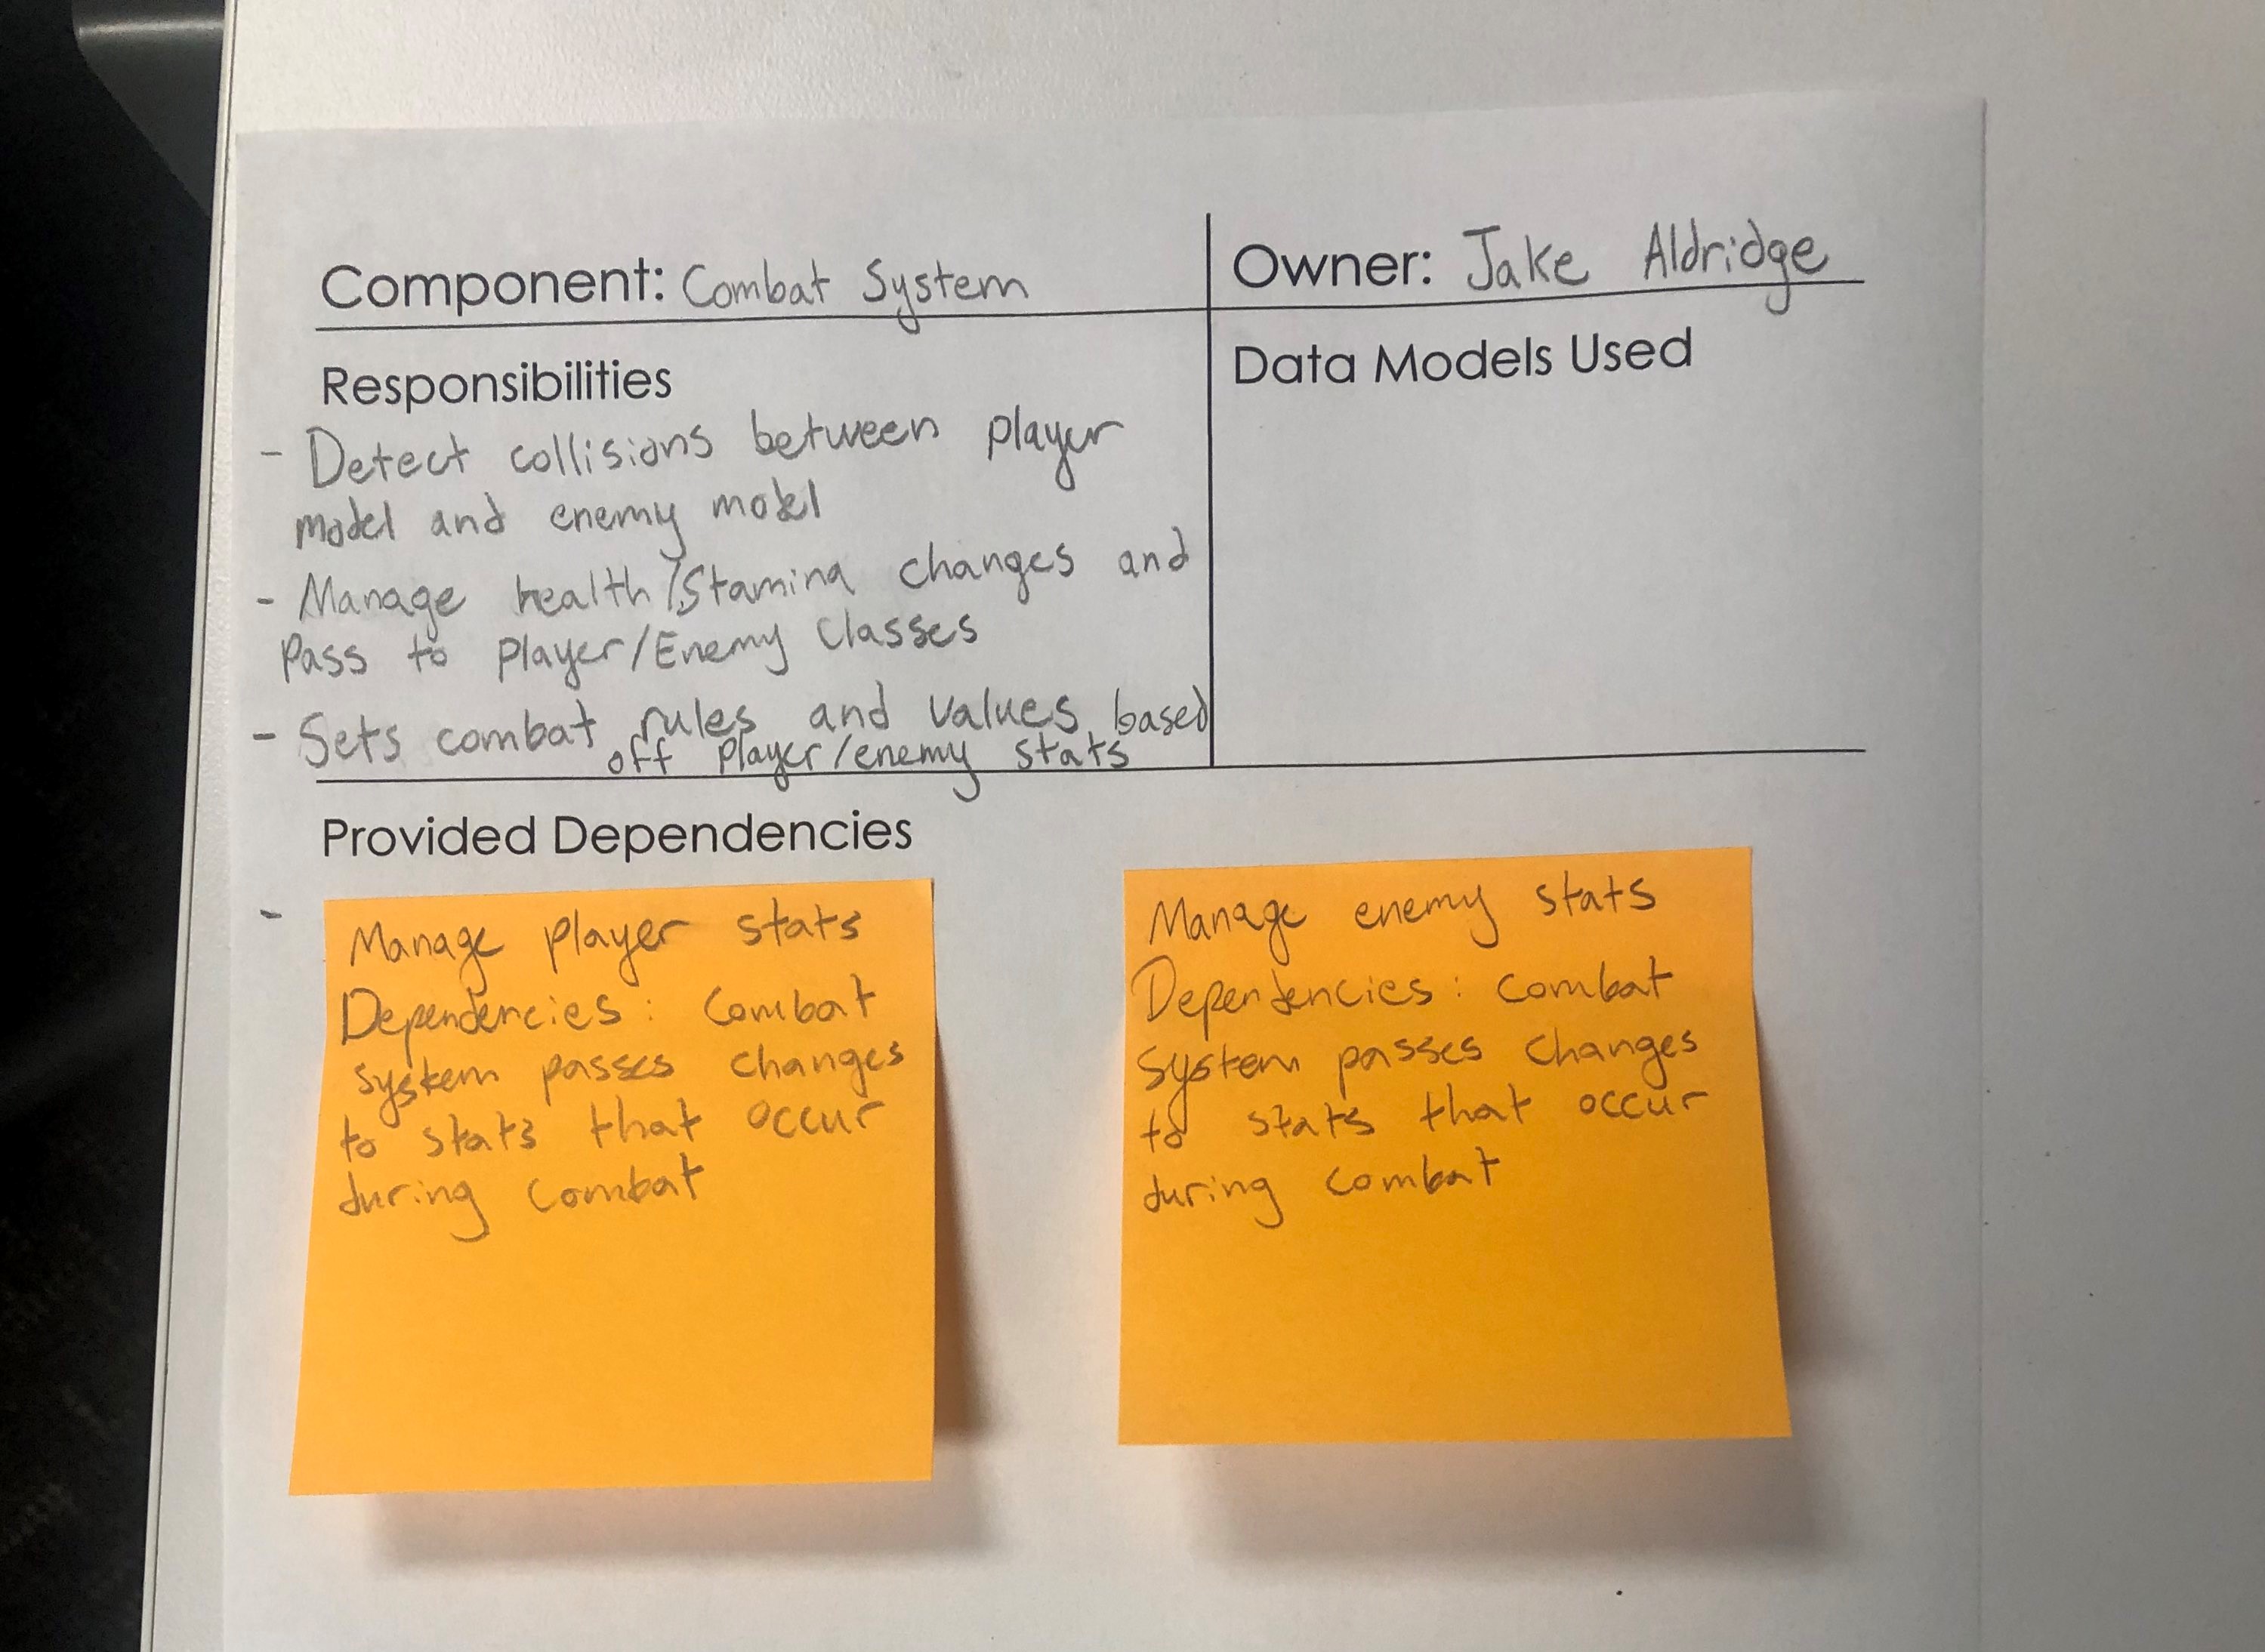 Component: Combat System
Owner: Jake Aldridge
Responsibilities
- Detect collisions between player
model and enemy model
- Manage health/Stamina changes and
Pass to player/Enemy Classes
- Sets combat rules and values based
off player/enemy stats
Data Models Used
Provided Dependencies
-
Manage player stats
Dependencies: Combat
system passes changes
to stats that occur
during combat
Manage enemy stats
Dependencies: Combat
system passes changes
to stats that occur
during combat